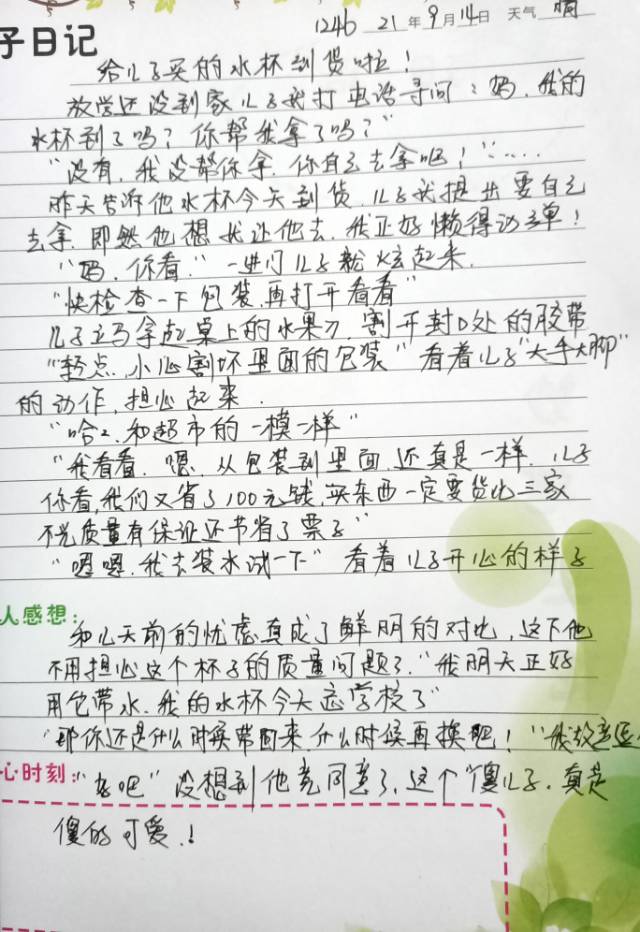 1246 21年9月14日 天气 晴
子日记
给儿子买的水杯到货啦!
放学还没到家儿子就打电话寻问:"妈,我的
水杯到了吗?你帮我拿了吗?"
"没有,我没帮你拿,你自己去拿吧!"……
昨天告诉他水杯今天到货,儿子就提出要自己
去拿,即然他想就让他去,我正好懒得动弹!
"妈,你看,"一进门儿子就炫起来.
"快检查一下包装,再打开看看"
儿子立马拿起桌上的水果刀,割开封口处的胶带
"轻点,小心割坏里面的包装"看着儿子"大手大脚"
的动作,担心起来.
"哈哈,和超市的一模一样"
"我看看,嗯,从包装到里面,还真是一样,儿子
你看,我们又省了100元钱,买东西一定要货比三家
不光质量有保证还节省了票子"
"嗯嗯,我去装水试一下"看着儿子开心的样子
人感想:
和几天前的忧虑真成了鲜明的对比,这下他
不用担心这个杯子的质量问题了."我明天正好
用它带水,我的水杯今天忘学校了"
"那你还是什么时候带回来,什么时候再换吧!"我故意逗
心时刻:"好吧"没想到他竟同意了,这个"傻儿子,真是
傻的可爱!